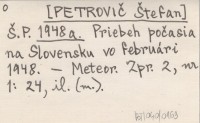 [PETROVIČ Štefan]
Š.P. 1948a. Priebeh počasia
na Slovensku vo februári
1948. — Meteor. Zpr. 2, nr
1: 24, il. (m.).